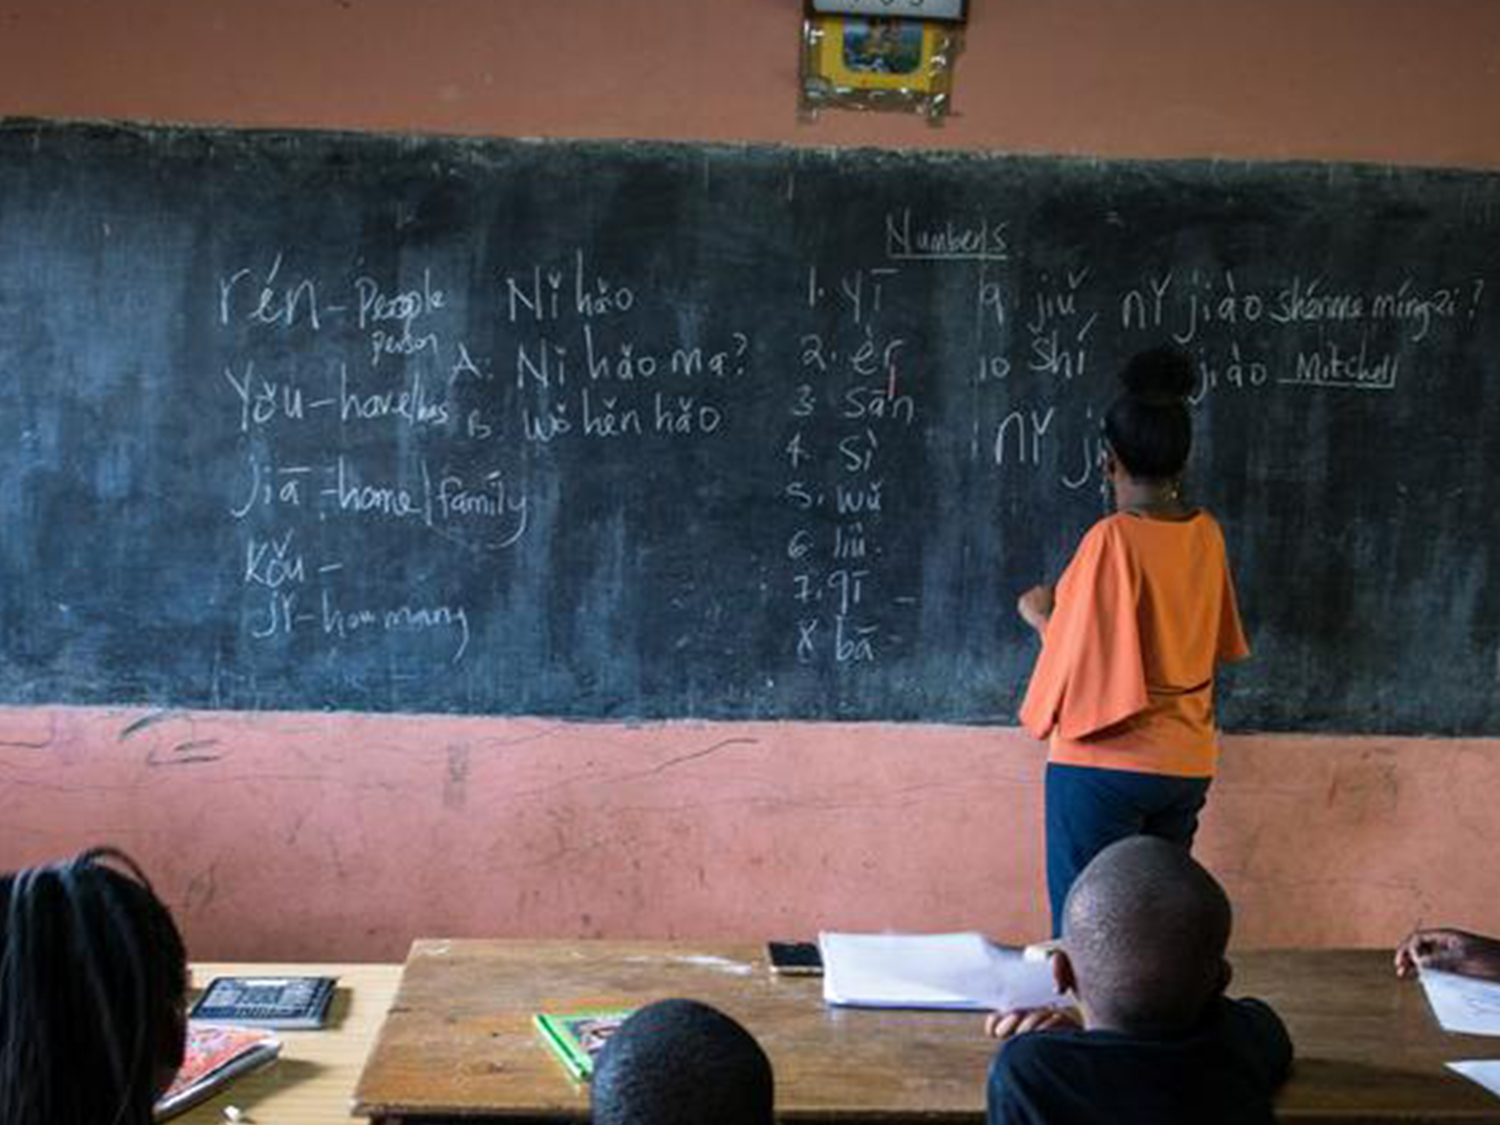 rén - People
person
Yǒu - have/has
Jiā - home/family
Kǒu -
Jǐ - how many
Nǐ hǎo
A: Nǐ hǎo ma?
B: wǒ hěn hǎo
Numbers
1. yī
2. èr
3. sān
4. sì
5. wǔ
6. liù.
7. qī
8 bā
9. jiǔ
10 shí
nǐ jiào shénme míngzi?
jiào Mitchell
nǐ ji